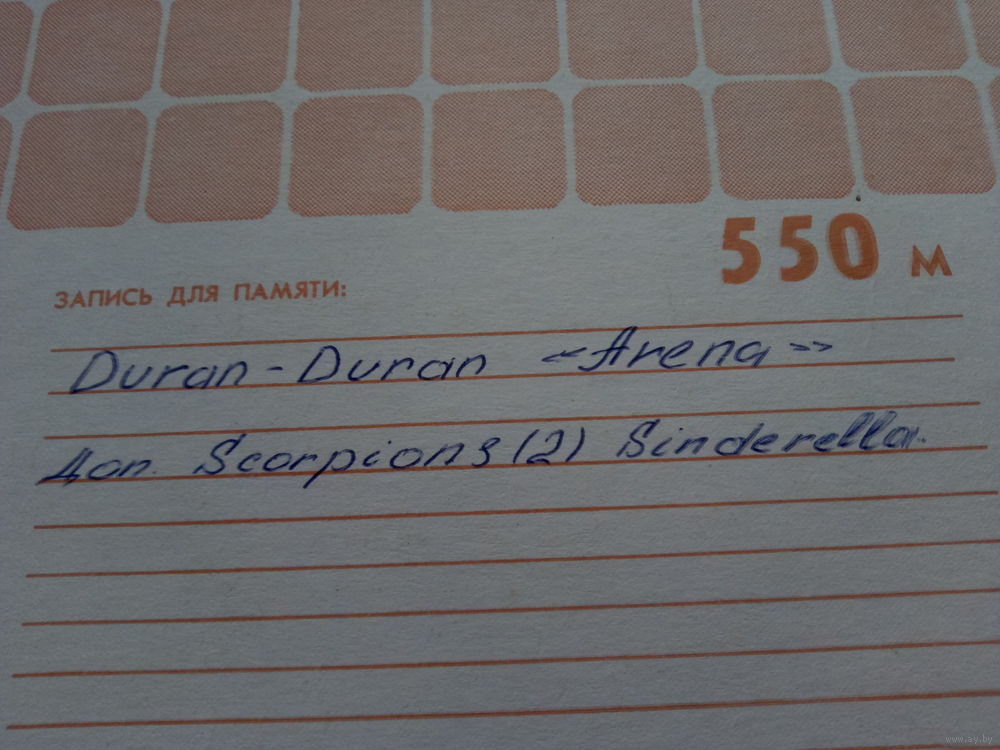 550 м
ЗАПИСЬ ДЛЯ ПАМЯТИ:
Duran - Duran «Arena»
Доп. Scorpions (2) Sinderella.
www.ay.by